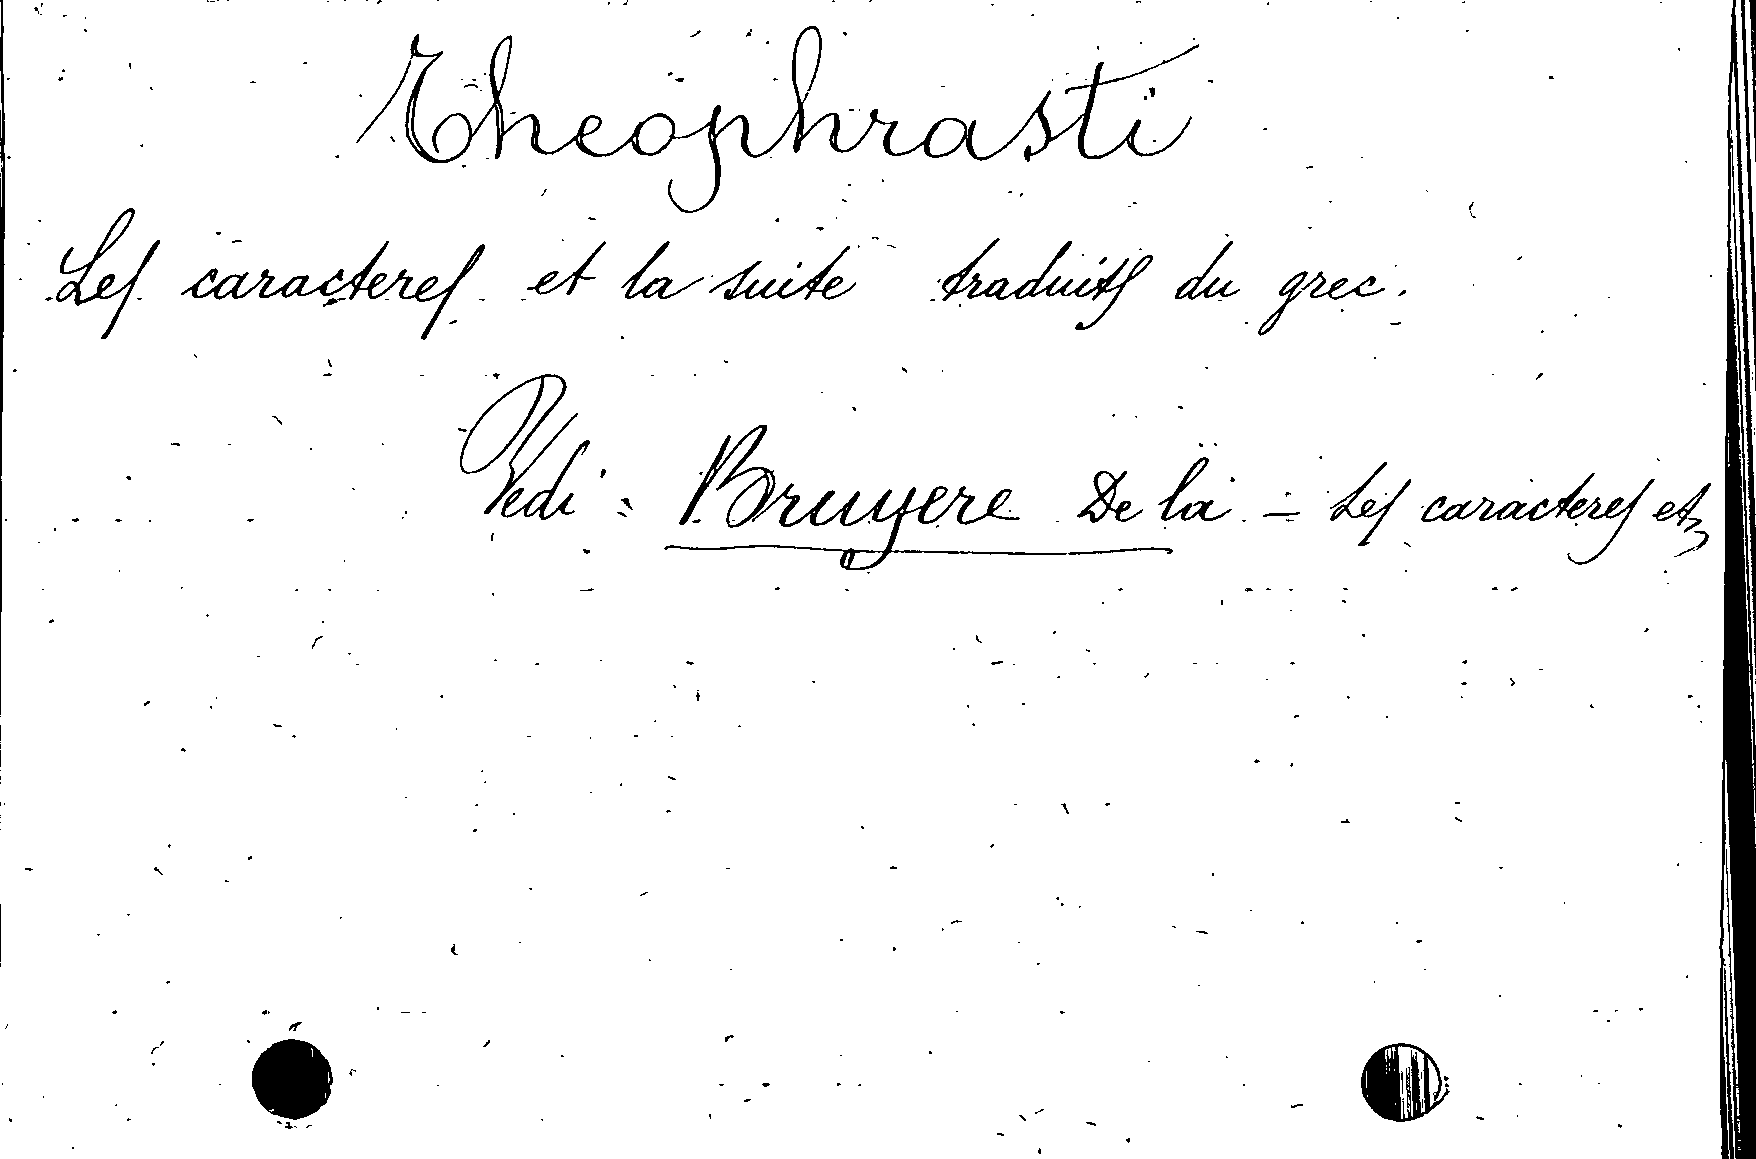 Theophrasti
Les caracteres et la suite traduits du grec.
Vedi: Bruyere De la – Les caracteres etz